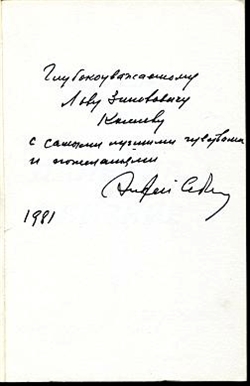 Глубокоуважаемому
Льву Зиновьевичу
Копелеву
с самыми лучшими чувствами
и пожеланиями
Андрей
1981